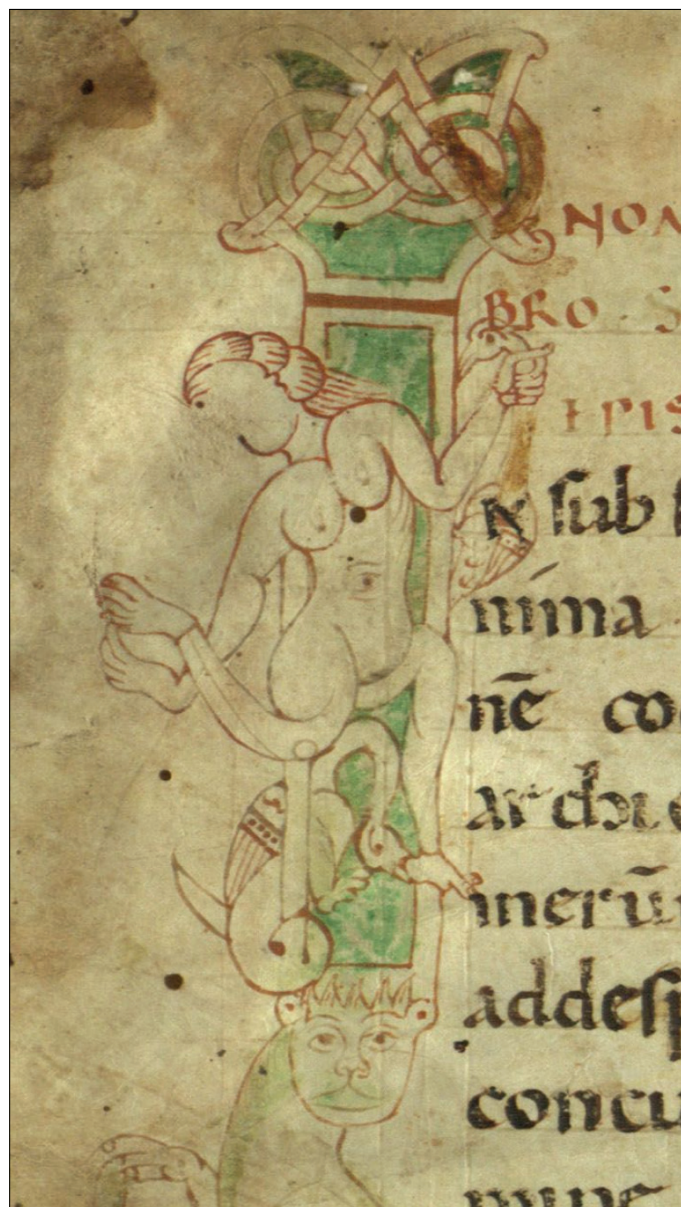 NOM
BRO · S
EPIS
N ſub ſ
nima
nē co
archie
merū
addeſp
concu